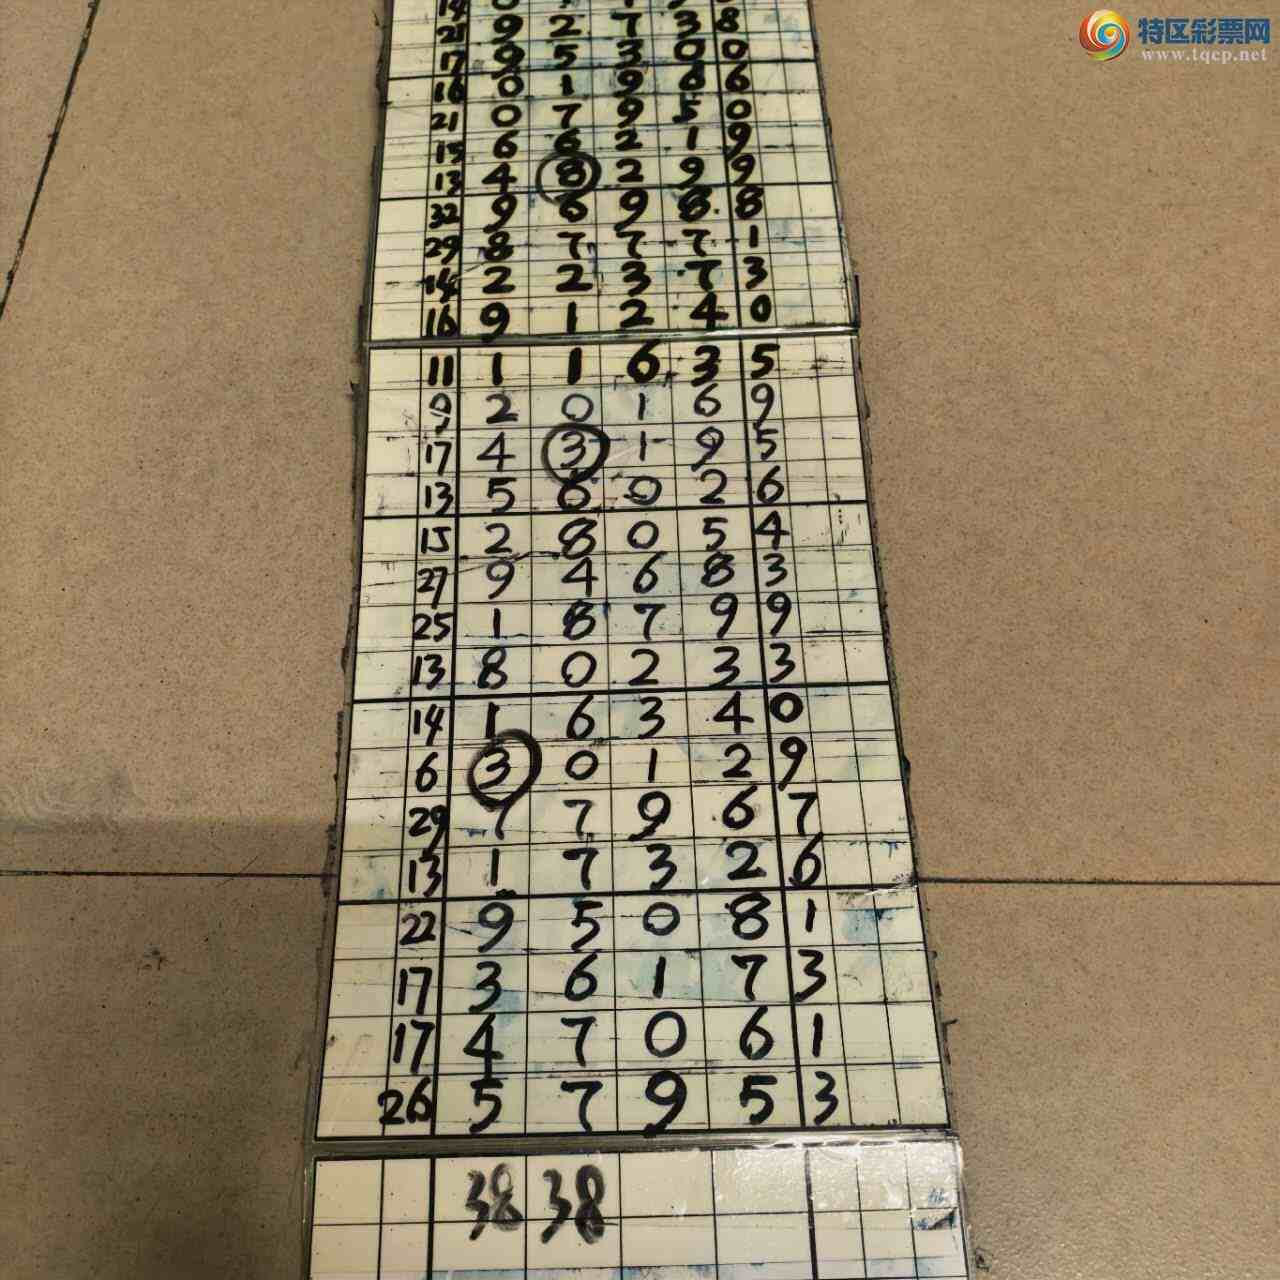 特区彩票网
www.tqcp.net
21 9 2 7 3 8
17 9 5 3 0 0
16 0 1 9 6 6
21 0 7 9 5 0
15 6 6 2 1 9
13 4 8 2 9 9
32 9 6 9 8 8
29 8 7 7 7 1
14 2 2 3 7 3
16 9 1 2 4 0
11 1 1 6 3 5
9 2 0 1 6 9
17 4 3 1 9 5
13 5 6 0 2 6
15 2 8 0 5 4
27 9 4 6 8 3
25 1 8 7 9 9
13 8 0 2 3 3
14 1 6 3 4 0
6 3 0 1 2 9
29 7 7 9 6 7
13 1 7 3 2 6
22 9 5 0 8 1
17 3 6 1 7 3
17 4 7 0 6 1
26 5 7 9 5 3
38 38